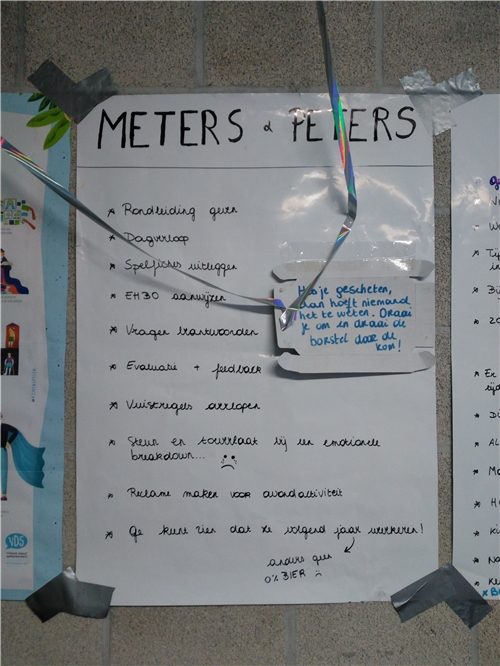 METERS & PETERS
* Rondleiding geven
* Dagverloop
* Spelfiches uitleggen
* EHBO aanwijzen
* Vragen beantwoorden
* Evaluatie + feedback
* Vuistregels aflopen
* Steun en toeverlaat bij een emotionele
breakdown...
* Reclame maken voor avondactiviteit
* Ge kunt zien dat ze volgend jaar weerkeren!
anders geen
0% BIER
Heb je gescheten,
dan hoeft niemand
het te weten. Draai
je om en draai de
borstel door de
kom!
VDS